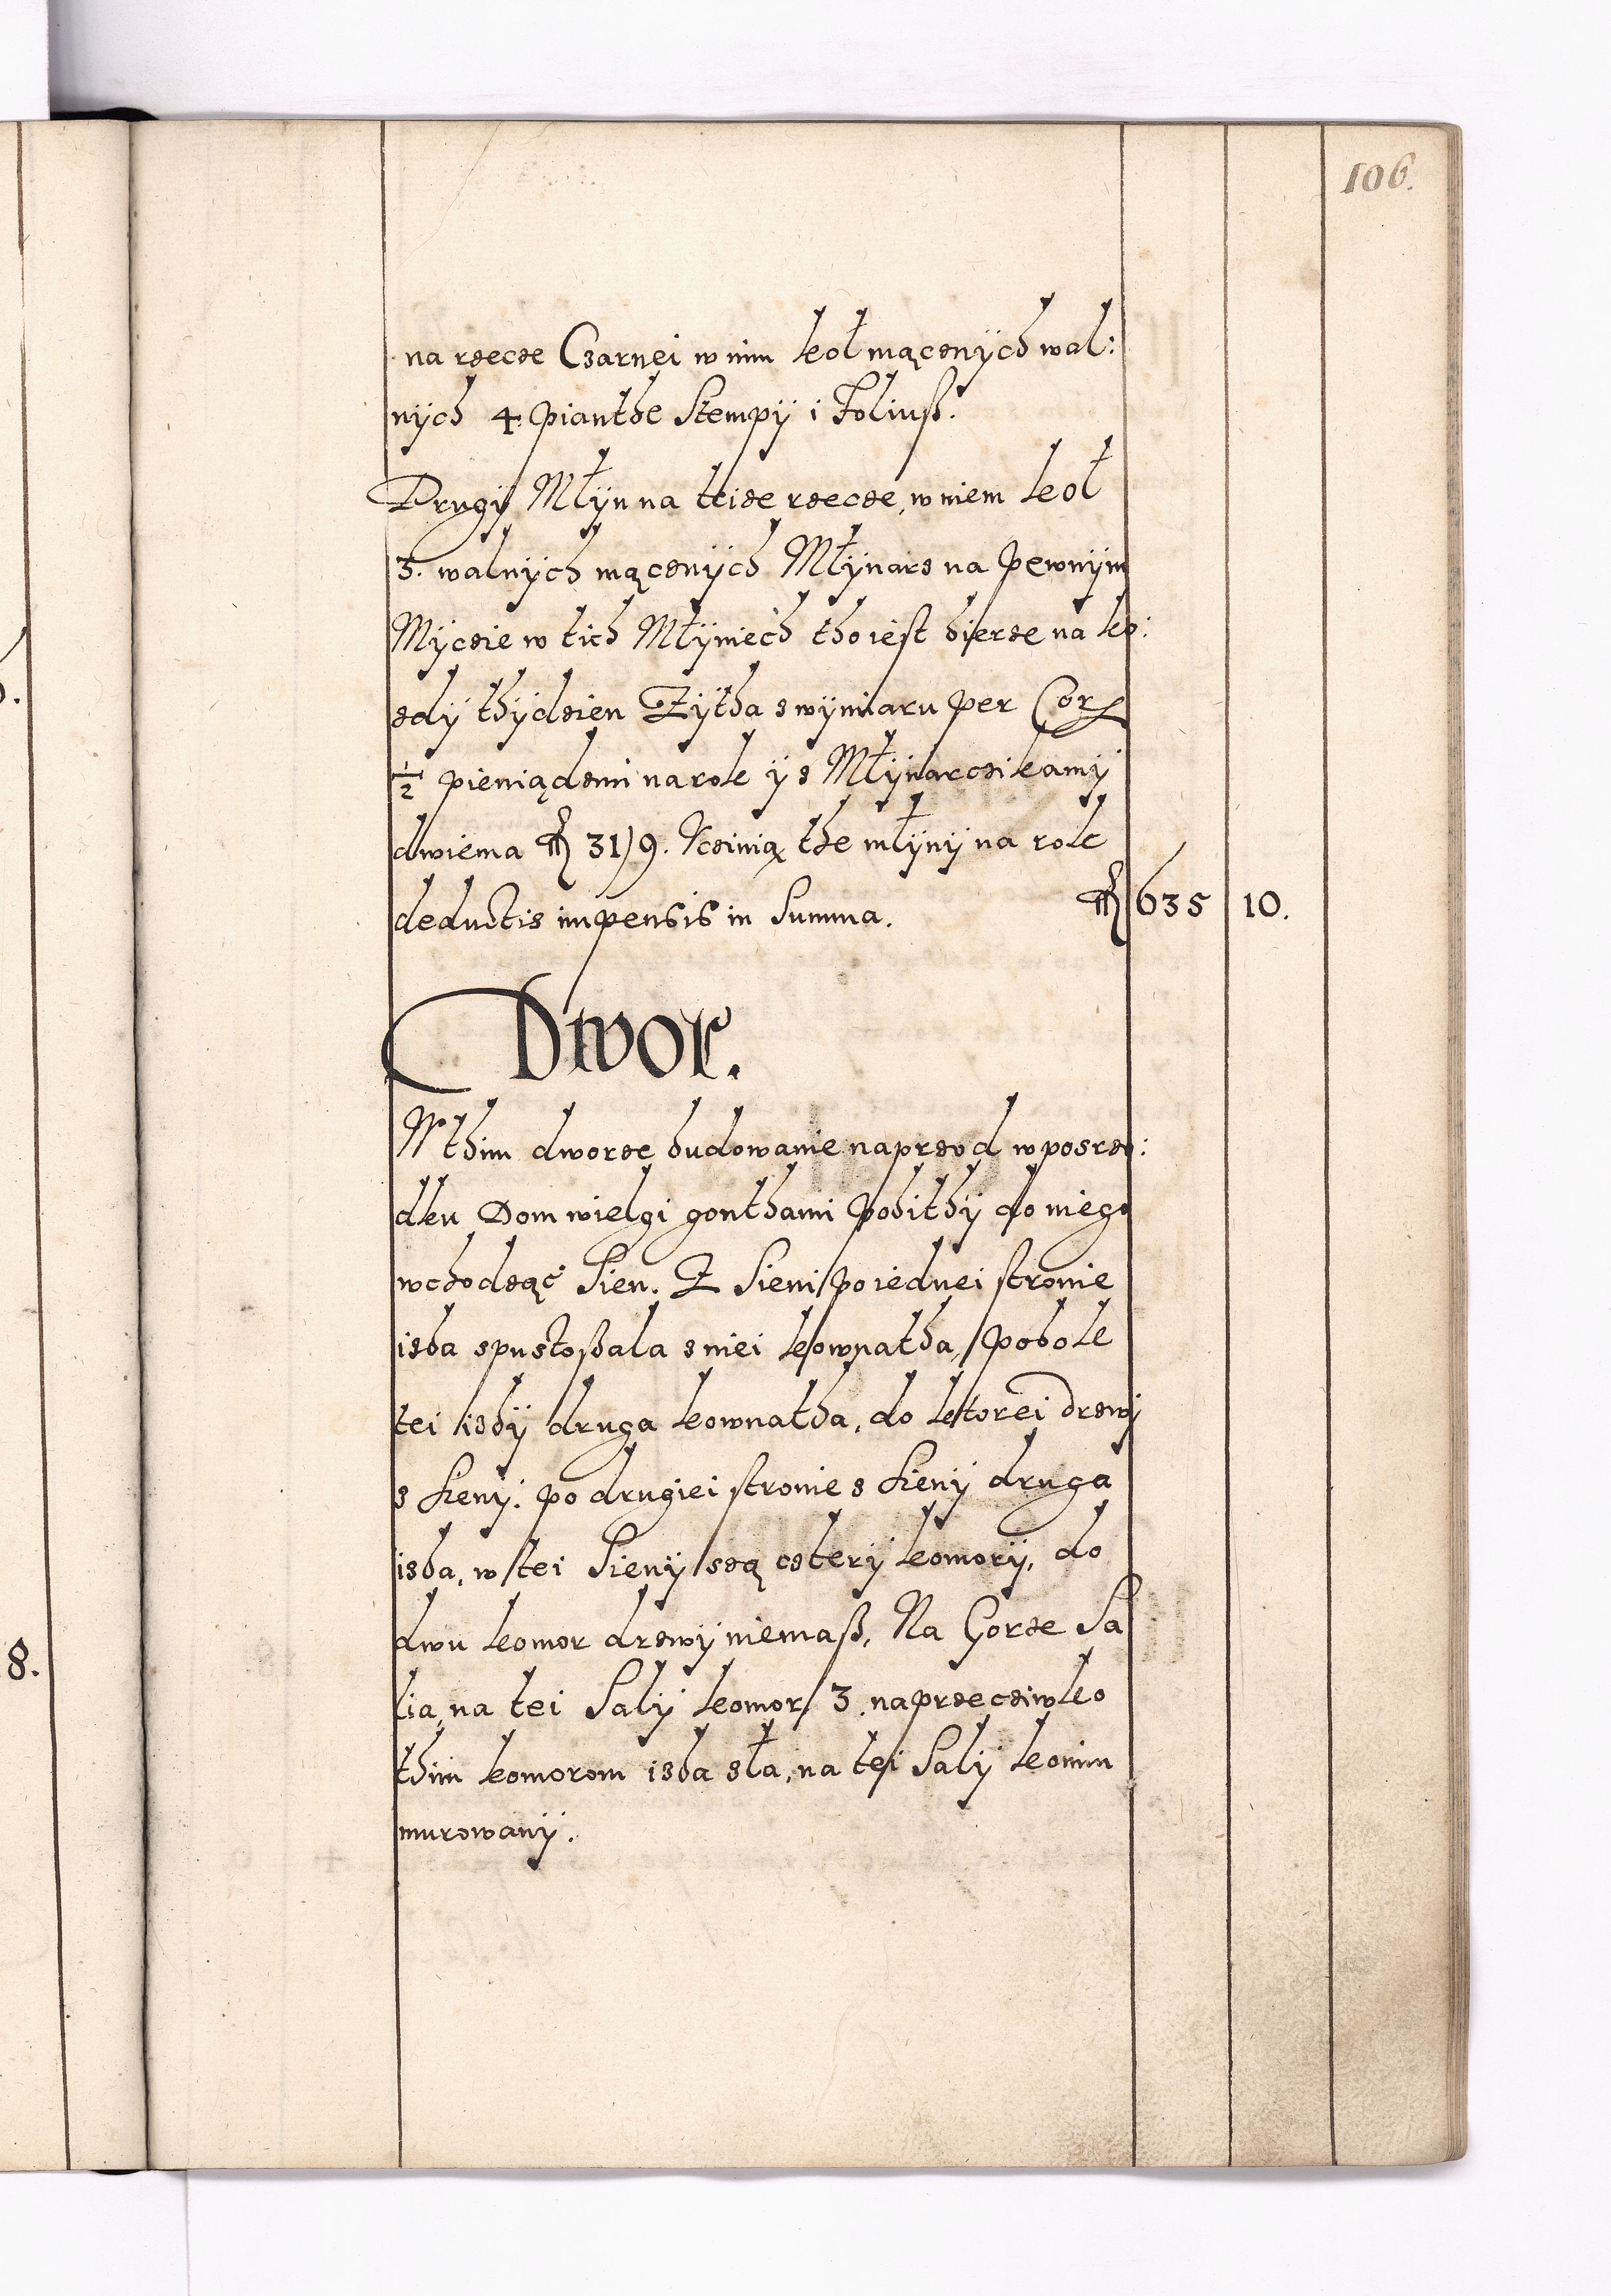 106.
na rzecze Czarnei w nim koł mącznÿch wal:
nÿch 4 pianthe Stempÿ i Foliuß.
Drugÿ Młÿn na teize rzecze, w niem koł
3. walnÿch mącznÿch Młÿnarz na pewnÿm
Mÿczie w tich Młÿniech tho iest bierze na ko:
zdÿ thÿdzien Zÿtha z wÿmiaru per Cor
1/2 pieniądzmi na rok ÿ z Młÿnarczikamÿ
dwiema fl 31/9. Vczinią the młÿnÿ na rok
deductis impensis in Summa. fl 635 10.
Dwor.
W thim dworze budowanie naprzod w posrzo:
dku Dom wielgi gonthami pobithÿ do niego
wchodząc Sien. Z Sieni po iednei stronie
izba spustoßala z niei kownatha, pobok
tei izbÿ druga kownatha, do ktorei drzwÿ
z Sienÿ. po drugiei stronie z Sienÿ druga
izba, w tei Sienÿ są czterÿ komorÿ, do
dwu komor drzwÿ niemaß, Na Gorze Sa
lia, na tei Salÿ komor 3. naprzecziwko
thim komorom izba zła, na tei Salÿ komin
murowanÿ.
8.